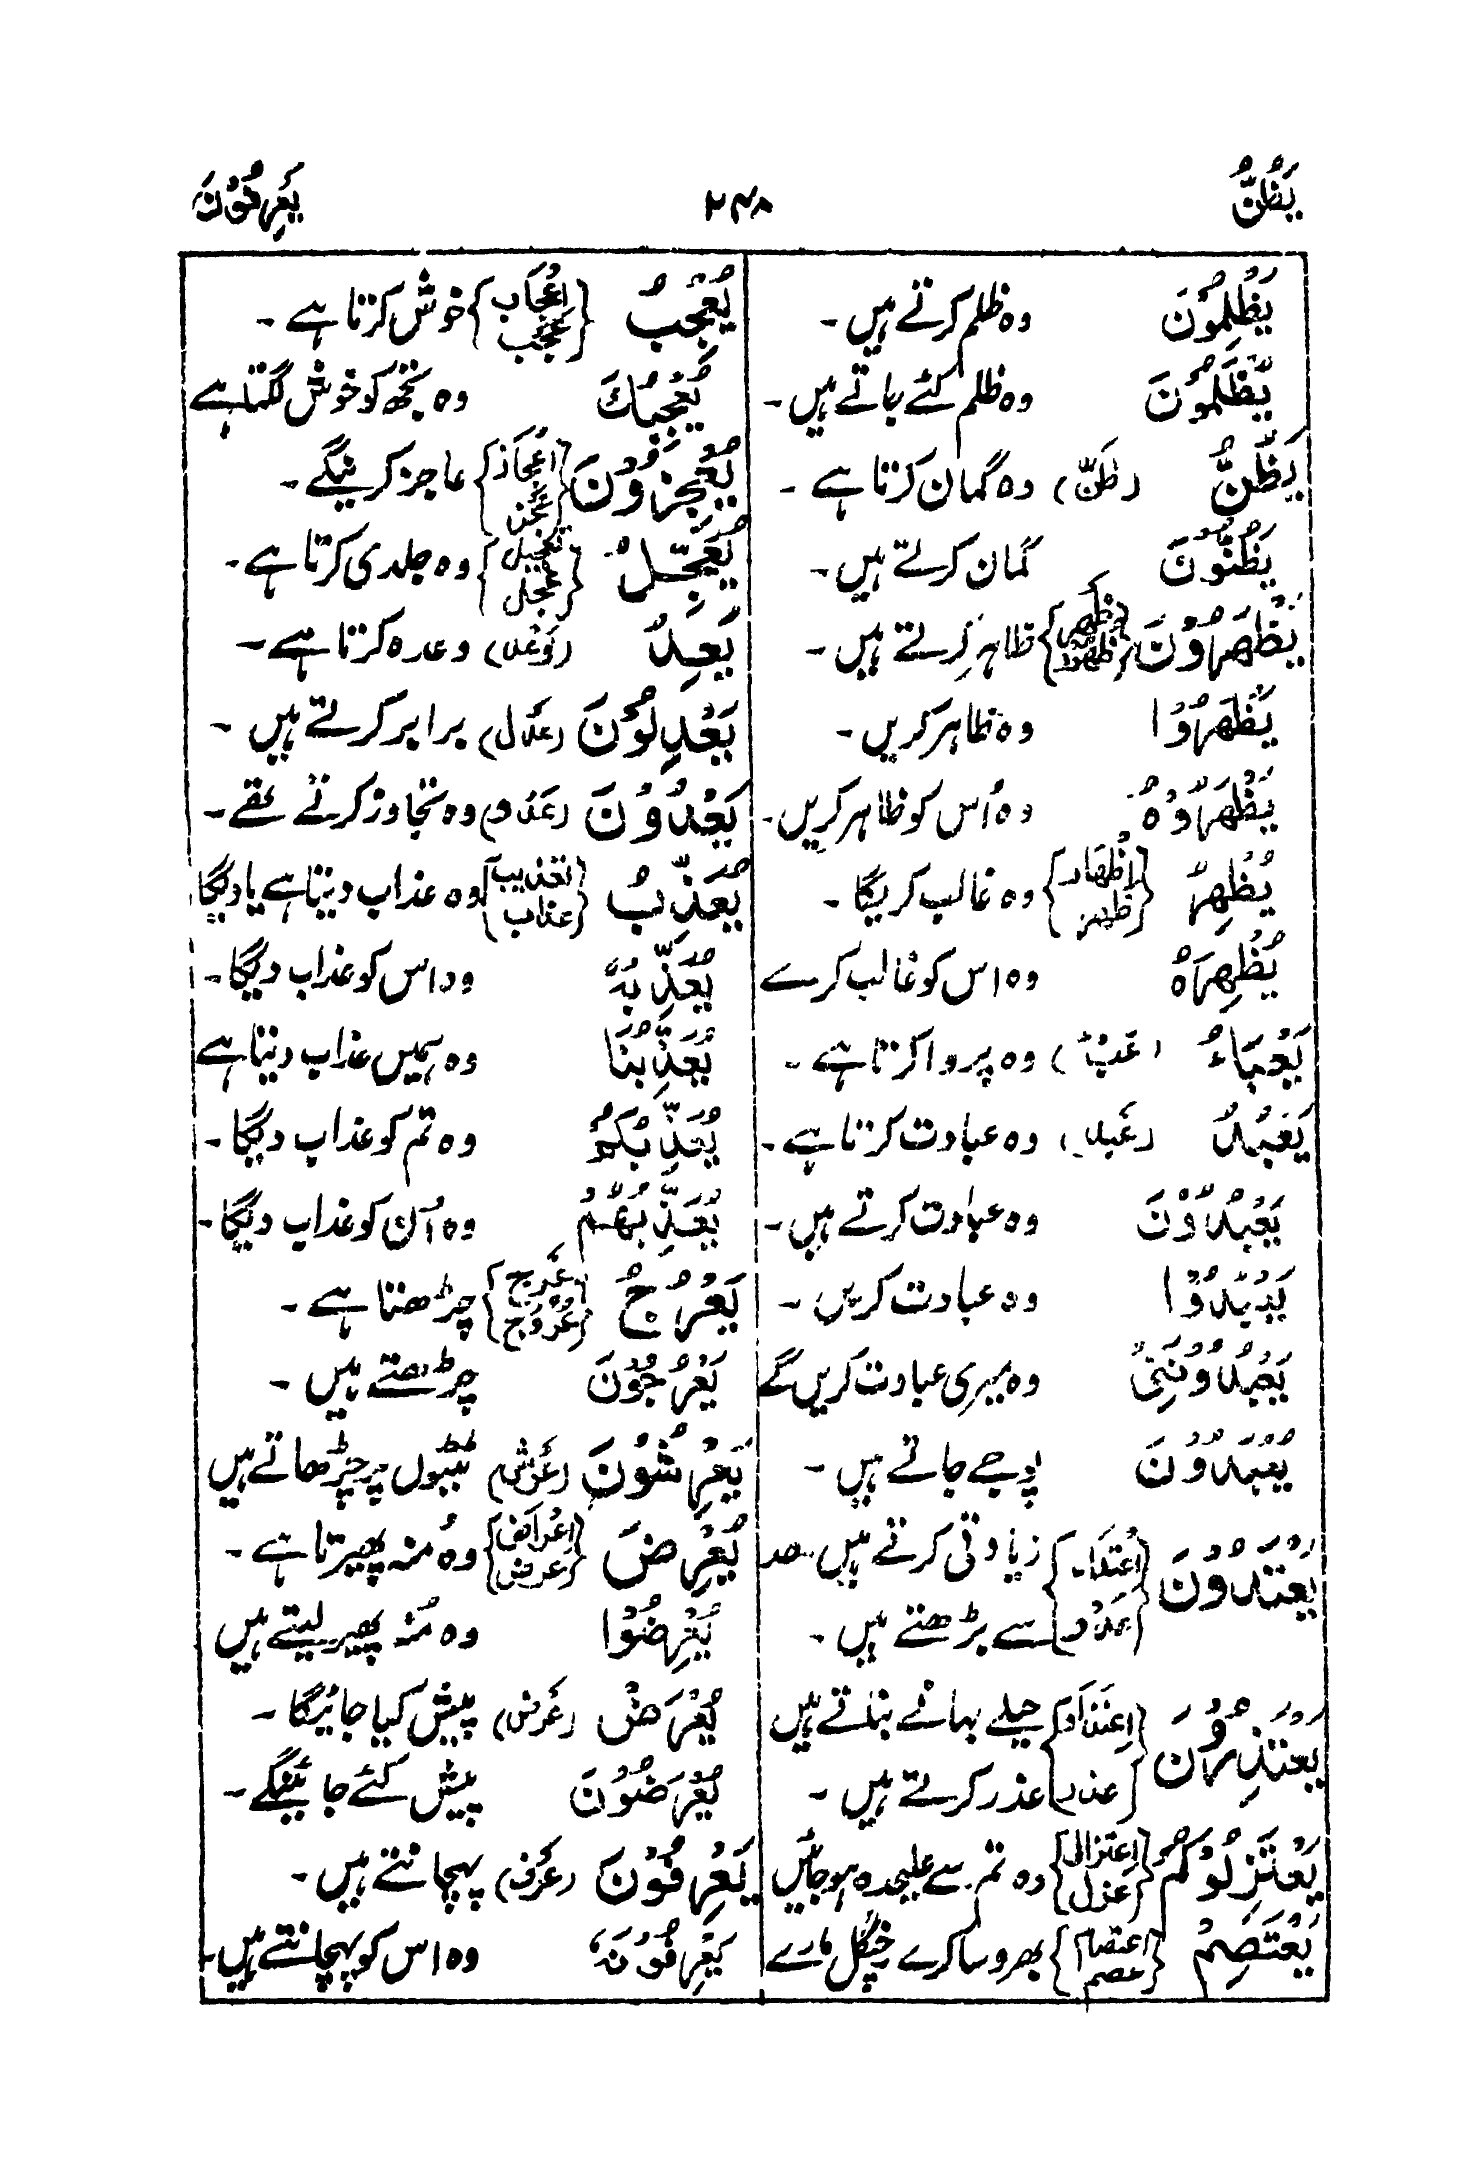 يَظُنُّ ۲۴۸ يَعْرِفُوْنَ
يَظْلِمُوْنَ وہ ظلم کرتے ہیں ۔
يُظْلَمُوْنَ وہ ظلم کئے جاتے ہیں ۔
يَظُنُّ (ظَنّ) وہ گمان کرتا ہے ۔
يَظُنُّوْنَ گمان کرتے ہیں ۔
يَظْهَرُوْنَ {ظَهر ظُهُوْر} ظاہر کرتے ہیں ۔
يَظْهَرُوْا وہ ظاہر کریں ۔
يَظْهَرُوْهُ وہ اُس کو ظاہر کریں ۔
يُظْهِرُ {اِظْهَار ظهر} وہ غالب کریگا ۔
يُظْهِرَهُ وہ اس کو غالب کرے
يَعْبَاءُ (عَبْء) وہ پروا کرتا ہے ۔
يَعْبُدُ (عَبد) وہ عبادت کرتا ہے ۔
يَعْبُدُوْنَ وہ عبادت کرتے ہیں ۔
يَعْبُدُوْا وہ عبادت کریں ۔
يَعْبُدُوْنَنِيْ وہ میری عبادت کریں گے
يُعْبَدُوْنَ پوجے جاتے ہیں ۔
يَعْتَدُوْنَ {اِعْتِدَاء عَدْو} زیادتی کرتے ہیں حد
سے بڑھتے ہیں ۔
يَعْتَذِرُوْنَ {اِعْتِذَار عذر} حیلے بہانے بناتے ہیں
عذر کرتے ہیں ۔
يَعْتَزِلُوْكُمْ {اِعتزال عزل} وہ تم سے علیحدہ ہو جائیں
يَعْتَصِمْ {اعتصام عصم} بھروسا کرے چنگل مارے
يُعْجِبُ {اِعْجَاب عجب} خوش کرتا ہے ۔
يُعْجِبُكَ وہ تجھ کو خوش لگتا ہے
يُعْجِزُوْنَ {اِعْجَاز عجز} عاجز کرینگے ۔
يُعَجِّلُ {تعجیل عجل} وہ جلدی کرتا ہے ۔
يَعِدُ (وَعْد) وعدہ کرتا ہے ۔
يَعْدِلُوْنَ (عَدْل) برابر کرتے ہیں ۔
يَعْدُوْنَ (عَدْو) وہ تجاوز کرتے تھے ۔
يُعَذِّبُ {تعذیب عذاب} وہ عذاب دیتا ہے یا دیگا
يُعَذِّبُهُ وہ اس کو عذاب دیگا ۔
يُعَذِّبُنَا وہ ہمیں عذاب دیتا ہے
يُعَذِّبُكُمْ وہ تم کو عذاب دیگا ۔
يُعَذِّبُهُمْ وہ اُن کو عذاب دیگا ۔
يَعْرُجُ {عَرج عُرُوج} وہ چڑھتا ہے ۔
يَعْرُجُوْنَ چڑھتے ہیں ۔
يَعْرِشُوْنَ (عَرْش) ٹٹیوں پر چڑھاتے ہیں
يُعْرِضُ {اِعْرَاض عرض} وہ مُنہ پھیرتا ہے ۔
يُعْرِضُوْا وہ مُنہ پھیر لیتے ہیں
يُعْرَضُ (عَرض) پیش کیا جائیگا ۔
يُعْرَضُوْنَ پیش کئے جائینگے ۔
يَعْرِفُوْنَ (عَرف) پہچانتے ہیں ۔
يَعْرِفُوْنَهُ وہ اس کو پہچانتے ہیں ۔